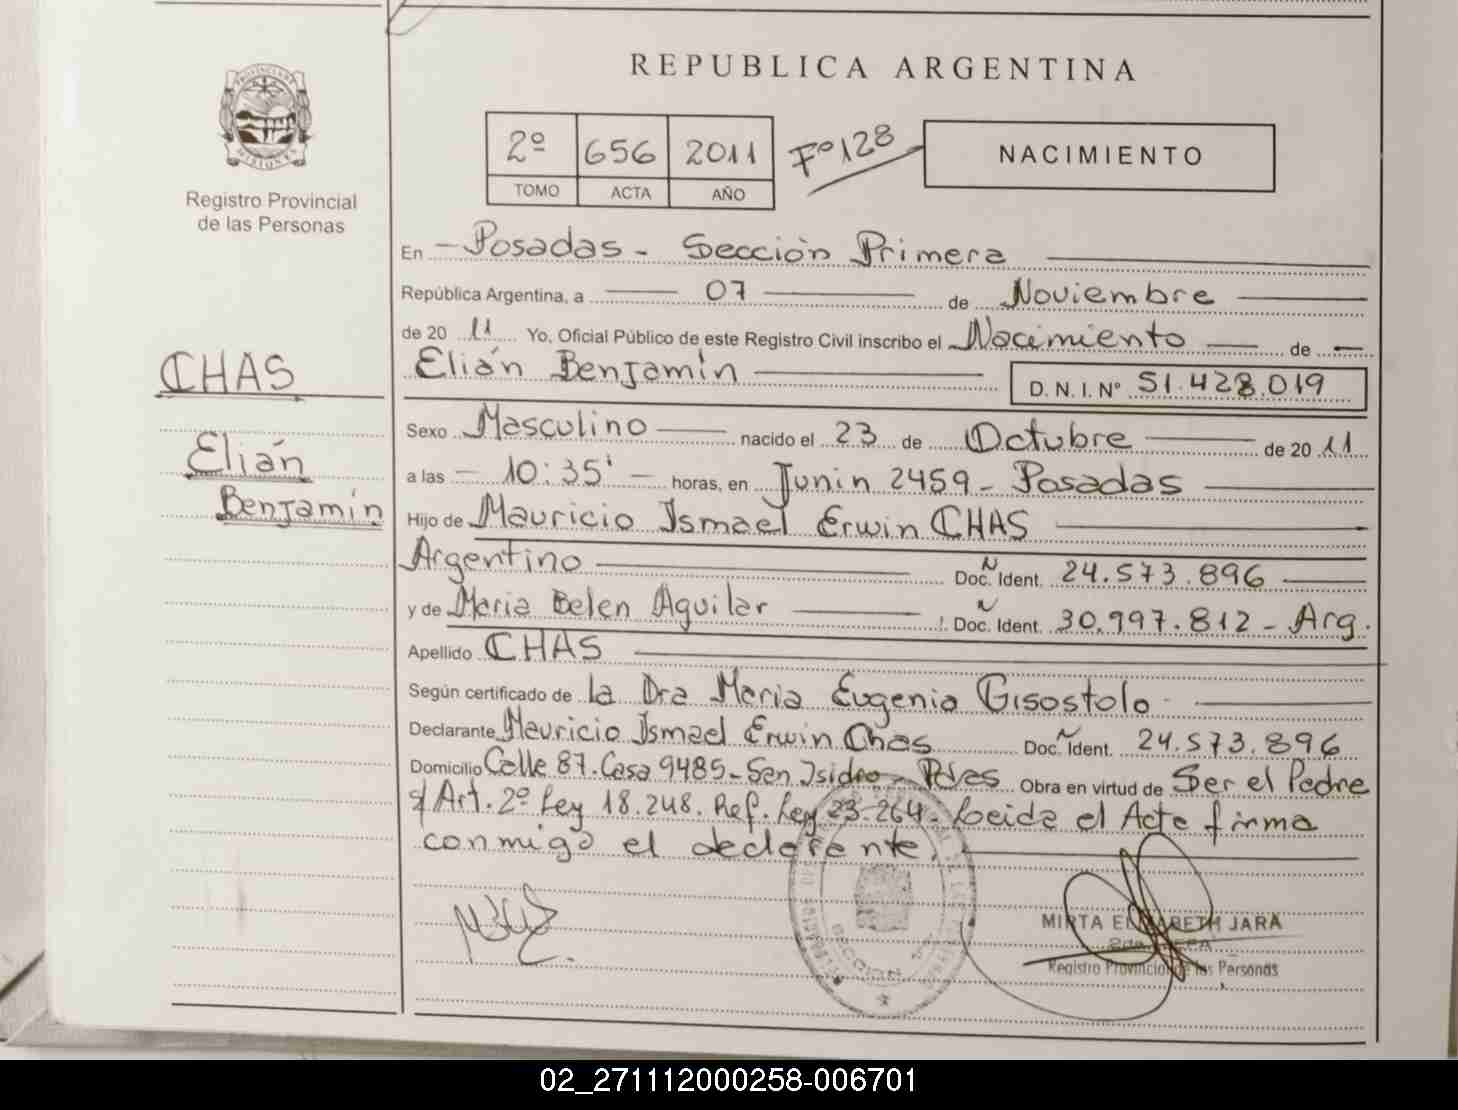 REPUBLICA ARGENTINA
2º 656 2011 Fº 128
TOMO ACTA AÑO
NACIMIENTO
PROVINCIA DE MISIONES
Registro Provincial
de las Personas
CHAS
Elián
Benjamín
En - Posadas - Sección Primera
República Argentina, a 07 de Noviembre
de 2011 Yo, Oficial Público de este Registro Civil inscribo el Nacimiento de
Elián Benjamín D. N. I. Nº 51.428.019
Sexo Masculino nacido el 23 de Octubre de 2011
a las - 10:35' - horas, en Junin 2459 - Posadas
Hijo de Mauricio Ismael Erwin CHAS
Argentino Doc. N Ident. 24.573.896
y de Maria Belen Aguilar Doc. N Ident. 30.997.812 - Arg.
Apellido CHAS
Según certificado de la Dra Maria Eugenia Gisostolo
Declarante Mauricio Ismael Erwin Chas Doc. N Ident. 24.573.896
Domicilio Calle 87. Casa 9485 - San Isidro - Pdas Obra en virtud de Ser el Padre
s/ Art. 2º Ley 18.248. Ref. Ley 23.264. Leida el Acta firma
conmigo el declarante.
MIRTA ELIZABETH JARA
Registro Provincial de las Personas
SECCION
02_271112000258-006701